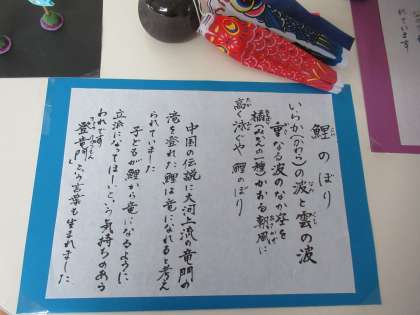 れています
鯉のぼり
いらか(かわら)の波と雲の波
重なる波のなか空を
橘(みかんの一種)かおる朝風に
高く泳ぐや 鯉のぼり
中国の伝説に大河上流の竜門の
滝を登れた鯉は竜になれると考え
られていました
子どもが鯉から竜になるように
立派になってほしいという気持ちのあら
われです
登竜門という言葉も生まれました